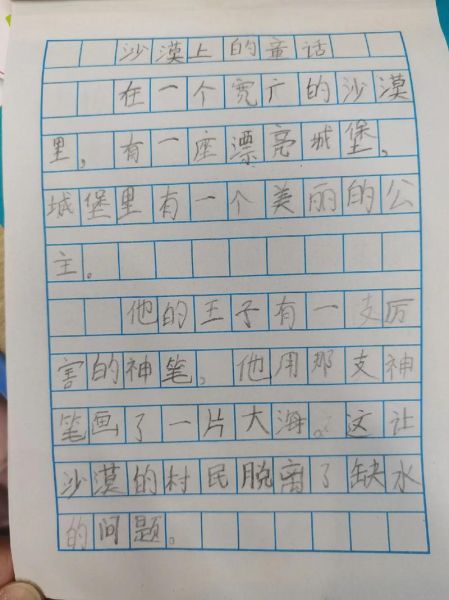 沙漠上的童话
在一个宽广的沙漠
里，有一座漂亮城堡，
城堡里有一个美丽的公
主。
他的王子有一支厉
害的神笔，他用那支神
笔画了一片大海。这让
沙漠的村民脱离了缺水
的问题。